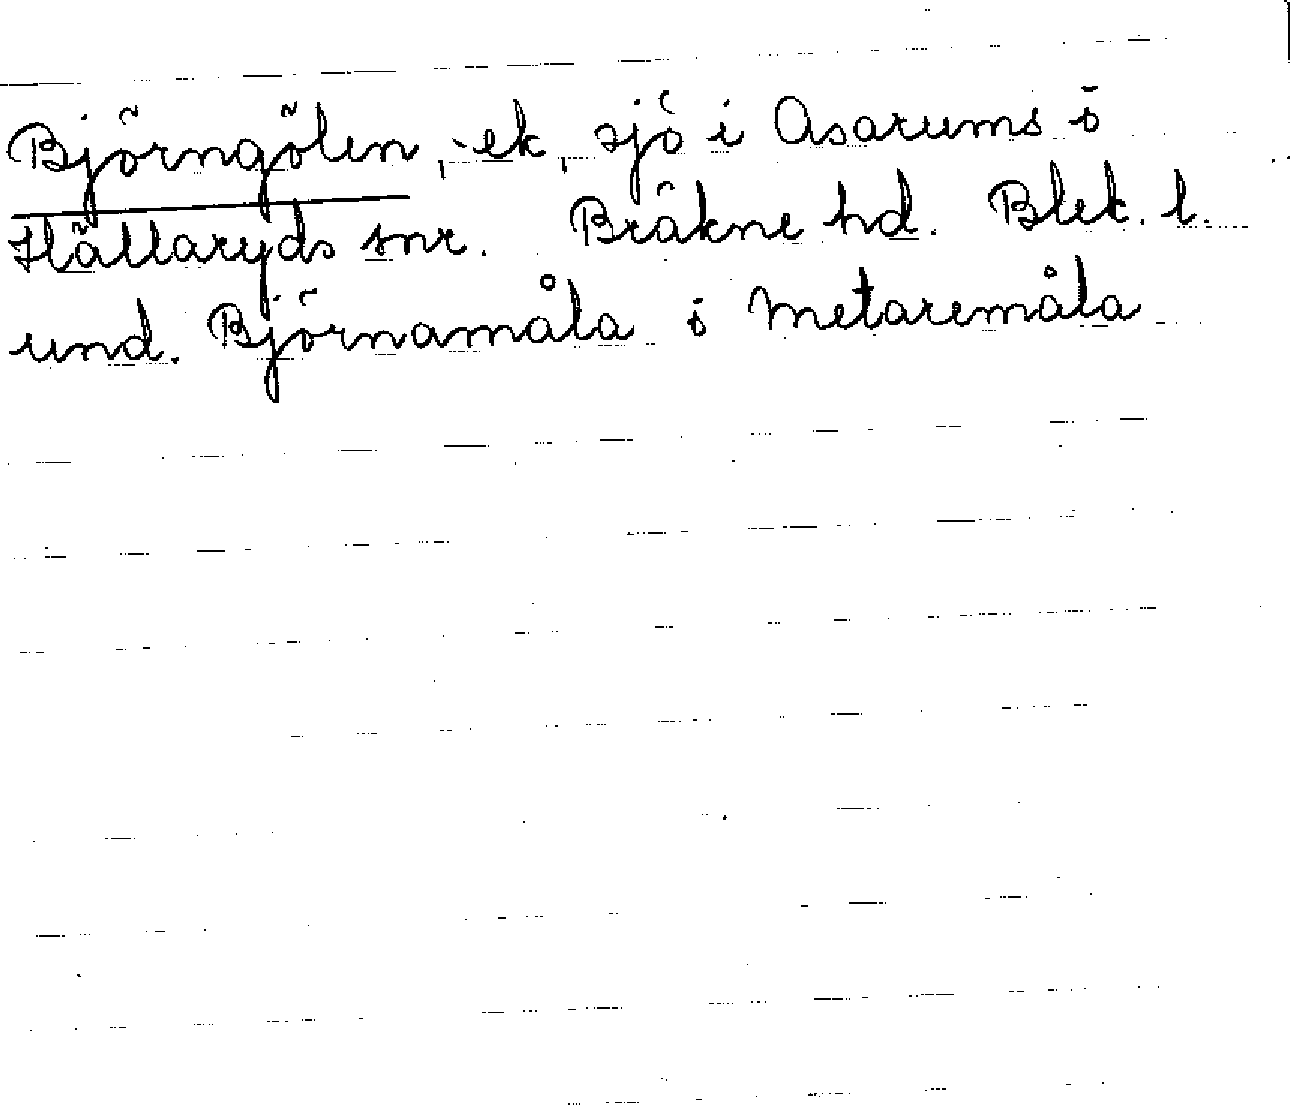 Björngölen, -ek, sjö i Asarums o
Hällaryds snr. Bräkne hd. Blek. l.
und. Björnamåla o Metaremåla